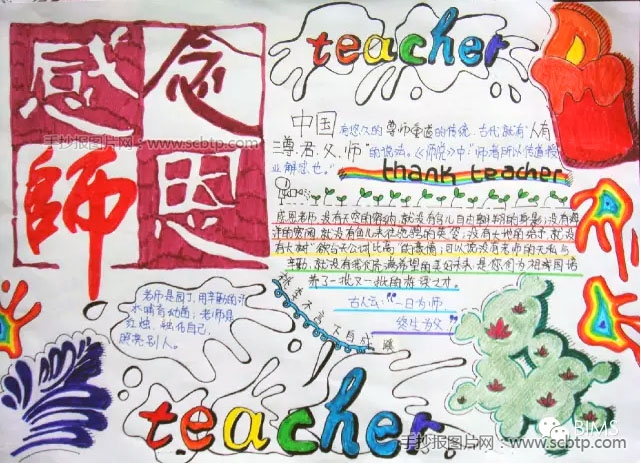 感念
師恩
手抄报图片网 - www.scbtp.com
teacher
中国有悠久的尊师重道的传统,古代就有"人有
三尊,君、父、师"的说法。《师说》中"师者所以传道授
业解惑也。"
thank teacher
感恩老师 没有天空的容纳 就没有鸟儿自由翱翔的身影;没有海
洋的宽阔 就没有鱼儿来往的英姿;没有大地的 就没
有大树"欲与天公试比高"的豪情;可以说没有老师的无私与
辛勤 就没有我们充满希望的美好未来 是你们为祖国培
养了一批又一批的栋梁之才.
古人云:"一日为师,
终生为父"
桃李不言 下自成蹊
老师是园丁,用辛勤的汗
水哺育幼苗;老师是
红烛,牺牲自己,
照亮别人。
teacher
BJMS
手抄报图片网 - www.scbtp.com